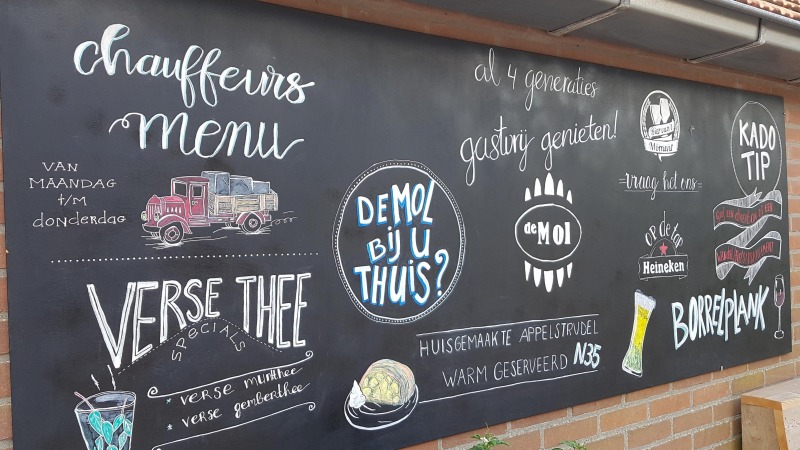 chauffeurs
menu
VAN
MAANDAG
t/m
donderdag
VERSE THEE
SPECIALS
* verse muntthee
* verse gemberthee
DE MOL
BIJ U
THUIS?
al 4 generaties
gastvrij genieten!
de Mol
HUISGEMAAKTE APPELSTRUDEL
WARM GESERVEERD N35
Bier van 't
Moment
-vraag het ons-
OP de tap
Heineken
KADO
TIP
BORRELPLANK